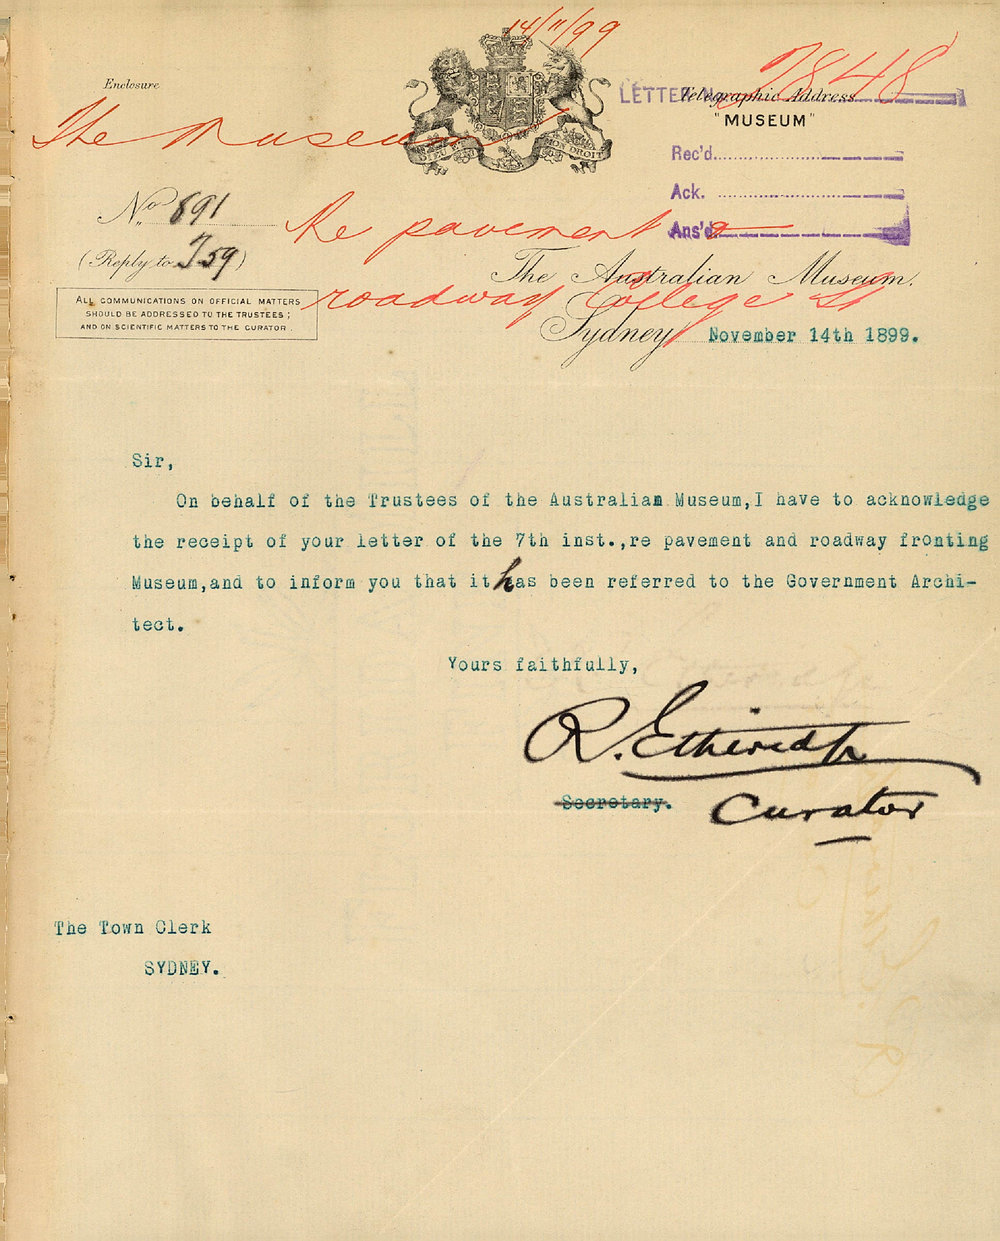 14/11/99
Enclosure
LETTER No 2848
Telegraphic Address
"MUSEUM"
The Museum
DIEU ET MON DROIT
Rec'd.
Ack.
Ans'd.
No 891
(Reply to T59)
Re pavement &
roadway College St
The Australian Museum.
ALL COMMUNICATIONS ON OFFICIAL MATTERS
SHOULD BE ADDRESSED TO THE TRUSTEES;
AND ON SCIENTIFIC MATTERS TO THE CURATOR.
Sydney November 14th 1899.
Sir,
On behalf of the Trustees of the Australian Museum,I have to acknowledge
the receipt of your letter of the 7th inst.,re pavement and roadway fronting
Museum,and to inform you that it has been referred to the Government Archi-
tect.
Yours faithfully,
R. Etheridge
Secretary. Curator
The Town Clerk
SYDNEY.